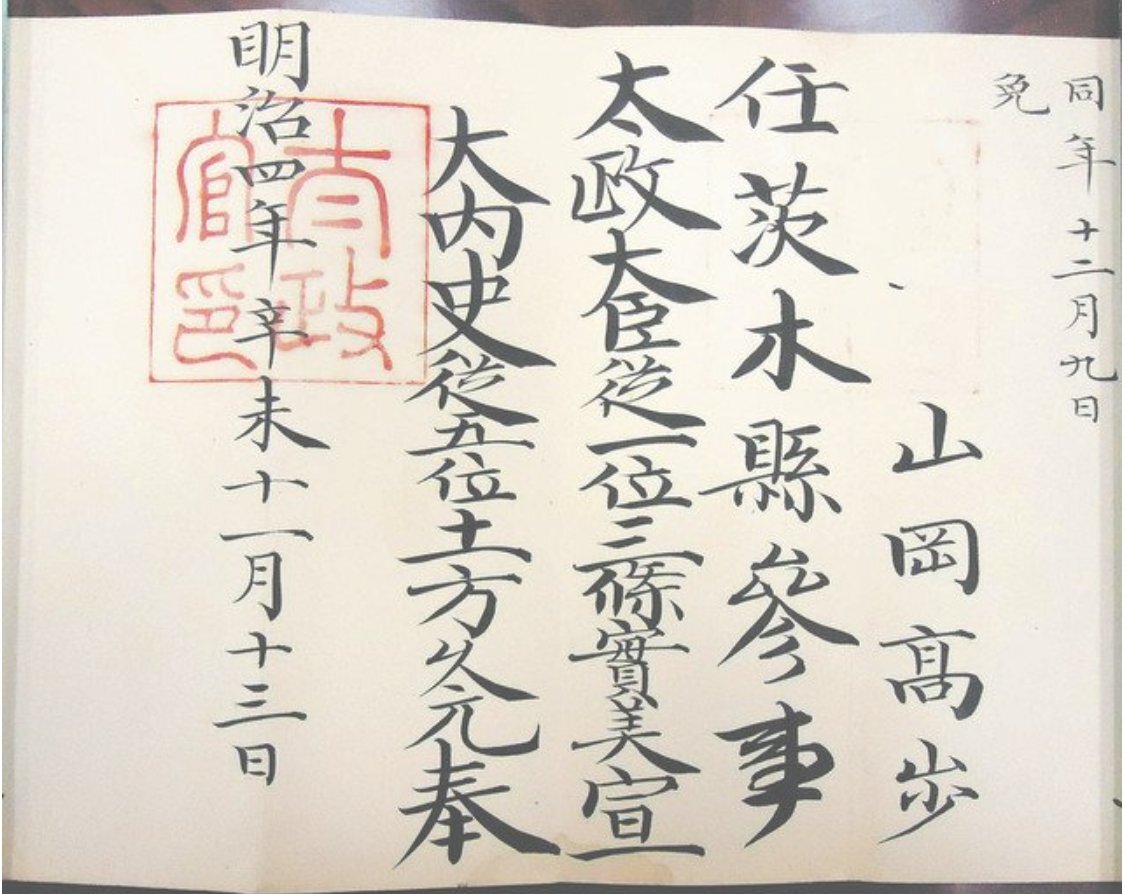 同年十二月九日
免
山岡髙歩
任茨木縣參事
太政大臣從一位三條實美宣
大内史從五位土方久元奉
明治四年辛未十一月十三日
太政官印